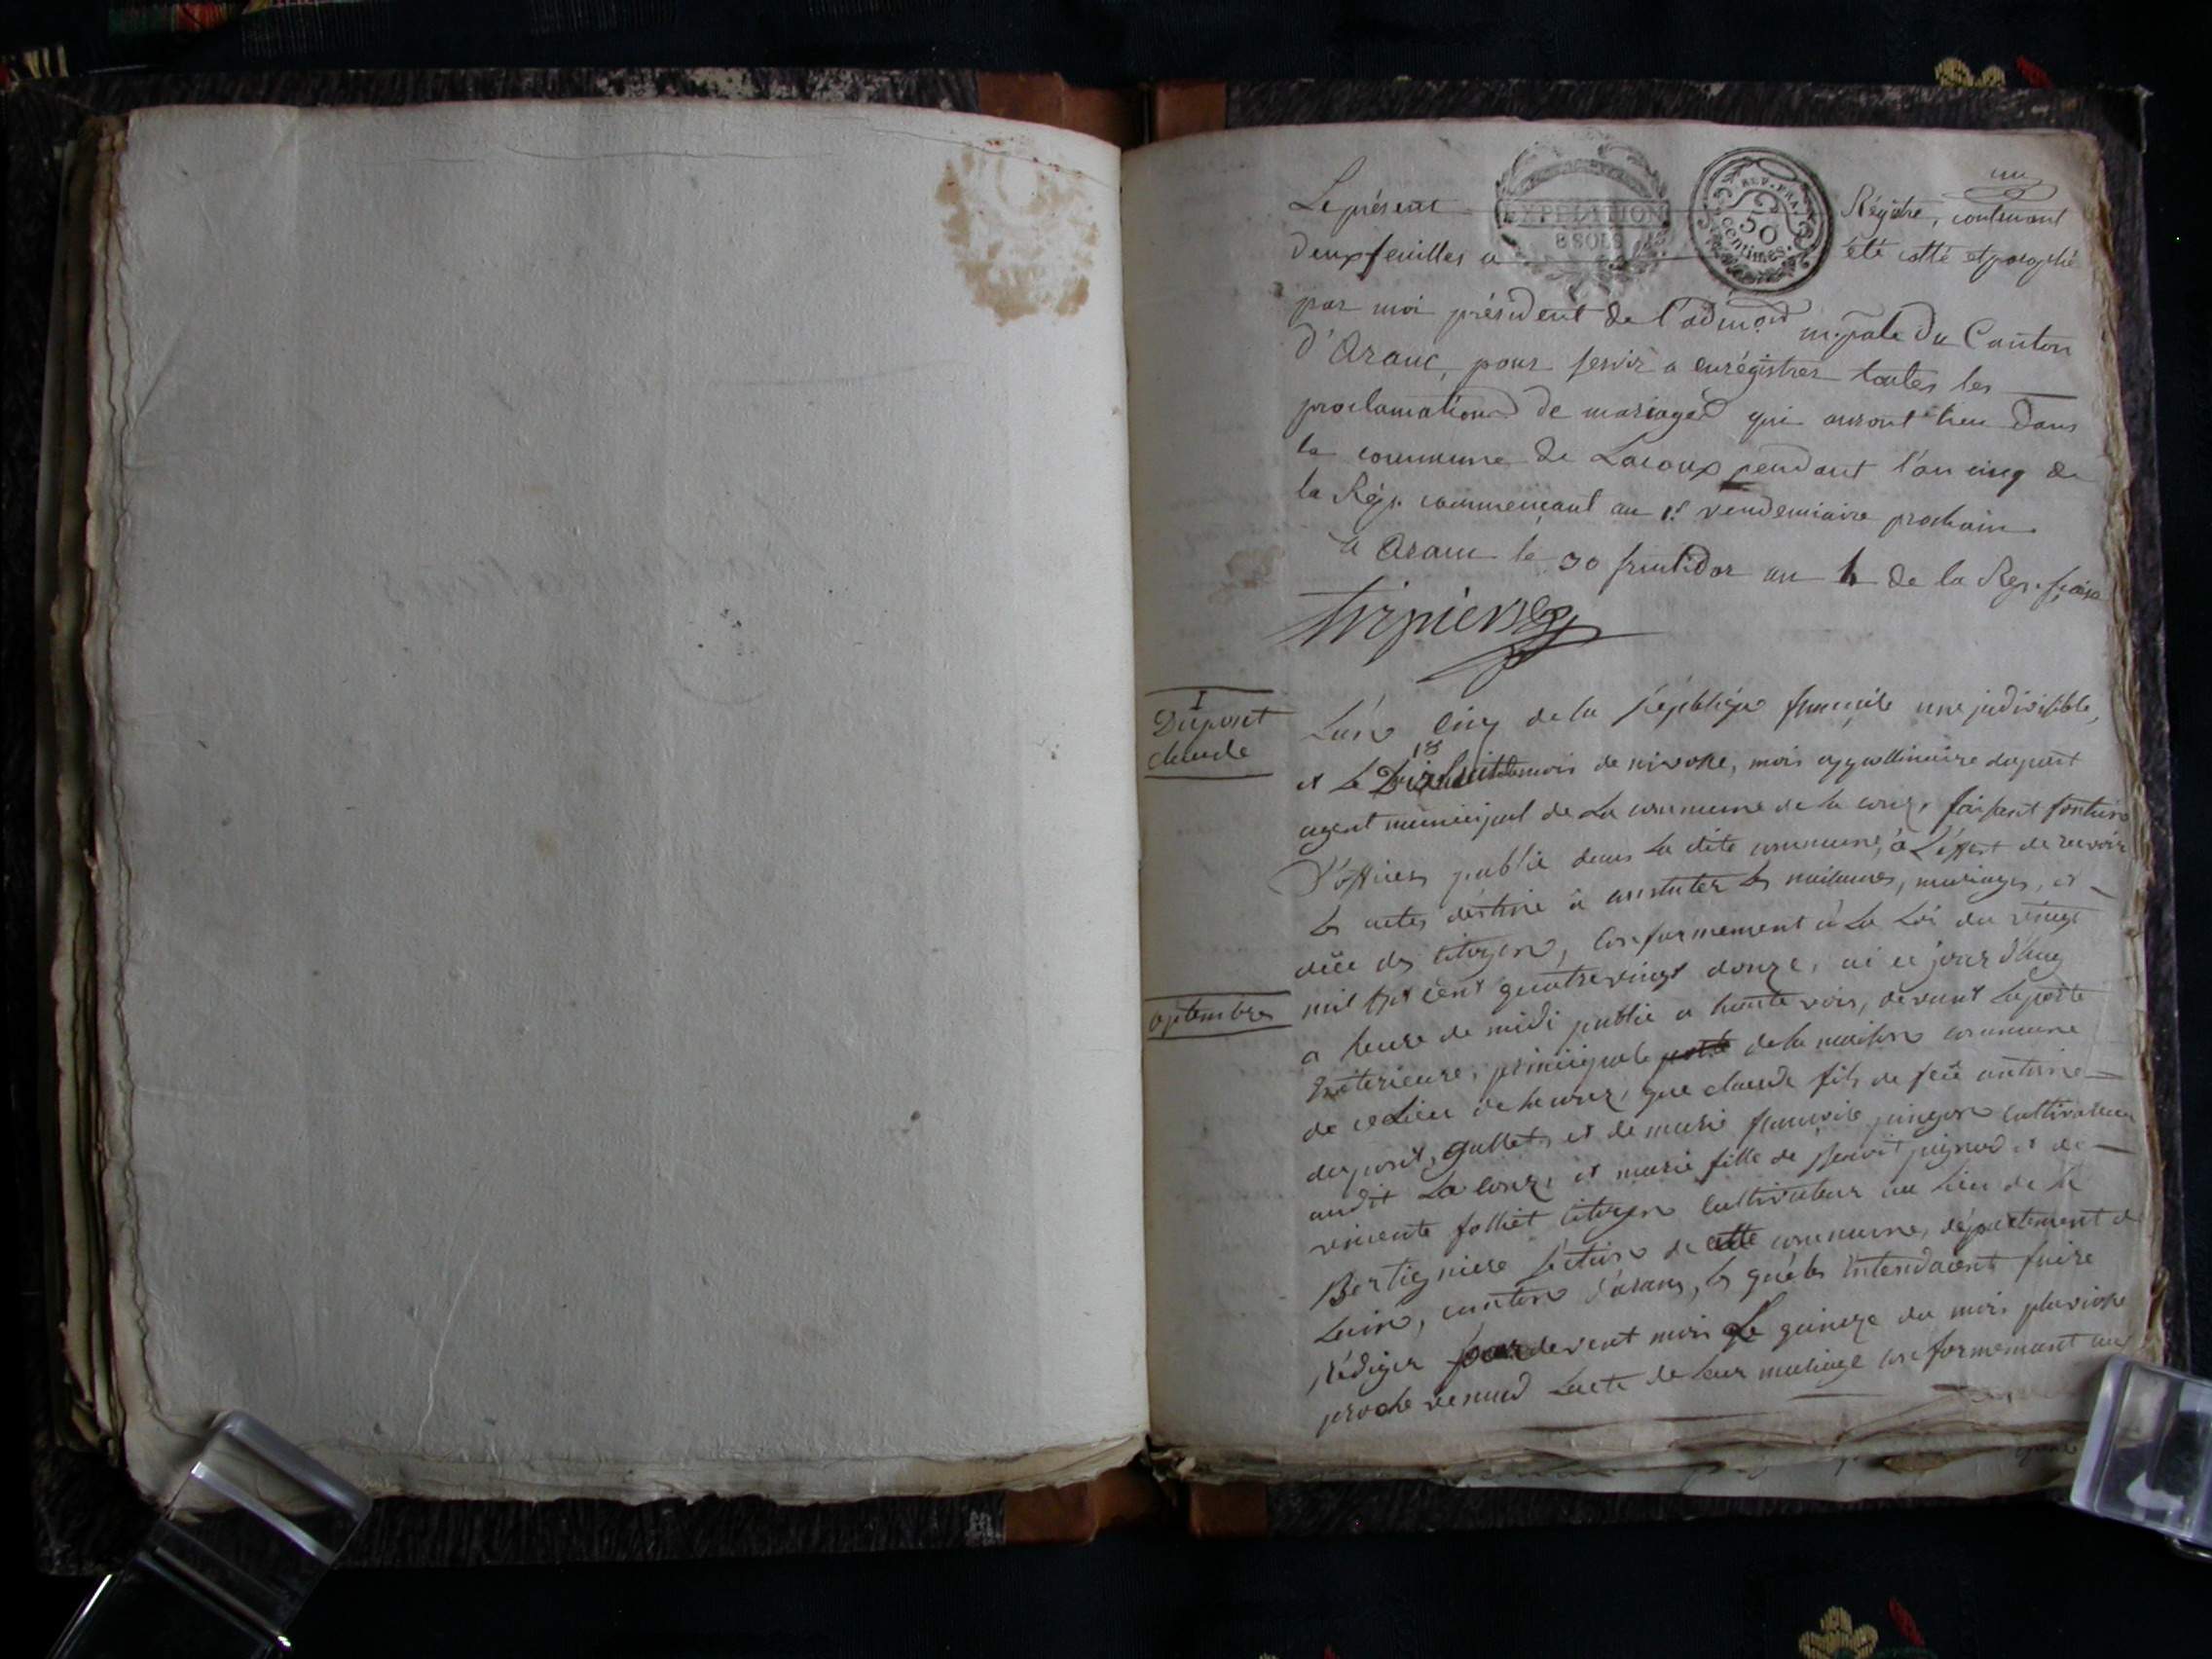 un
Le présent Régistre, contenant
EXPEDITION
8 SOLS
REP. FRA.
50
centimes.
deux feuilles a été cotté et paraphé
par moi président de l'admon mpale du Canton
d'Aranc, pour servir a enrégistrer toutes les
proclamations de mariages qui auront lieu dans
la commune de Lacoux pendant l'an cinq de
la Rép. commencant au 1er vendemiaire prochain
a Aranc le 30 fructidor an 4 de la Rep. fçaise
I
Dupont
claude
L'an cinq de la république francoise une indivisible,
18
et Le Dixhuit du mois de nivose, moi appollinaire dupont
agent municipal de La commune de la coux, faisant fontion
D'officier public dans La dite commune, à L'effet de recevoir
les actes déstiné à constater les naisances, mariages, et
décè des citoyen, Conformement à La Loi du vingt
septembre
mil sept cent quatrevingt douze, ai ce jour d'huy
a heure de midi publié a haute voix, devant La porte
Extérieure, principale porte de la maison commune
de ce Lieu de la coux, que claude fils de feû antoine
dupont, gallet, et de marie francoise pingon cultivateur
audit La coux, et marie fille de Benoit juignod et de
vincente folliet citoyen Cultivateur au Lieu de la
Bertigniere séction de cette commune, département de
Lain, canton d'aranc, les quels entendaient faire
rédiger pardevent moi Le quinze du mois pluviose
proche venand Lacte de Leur mariage conformemant au